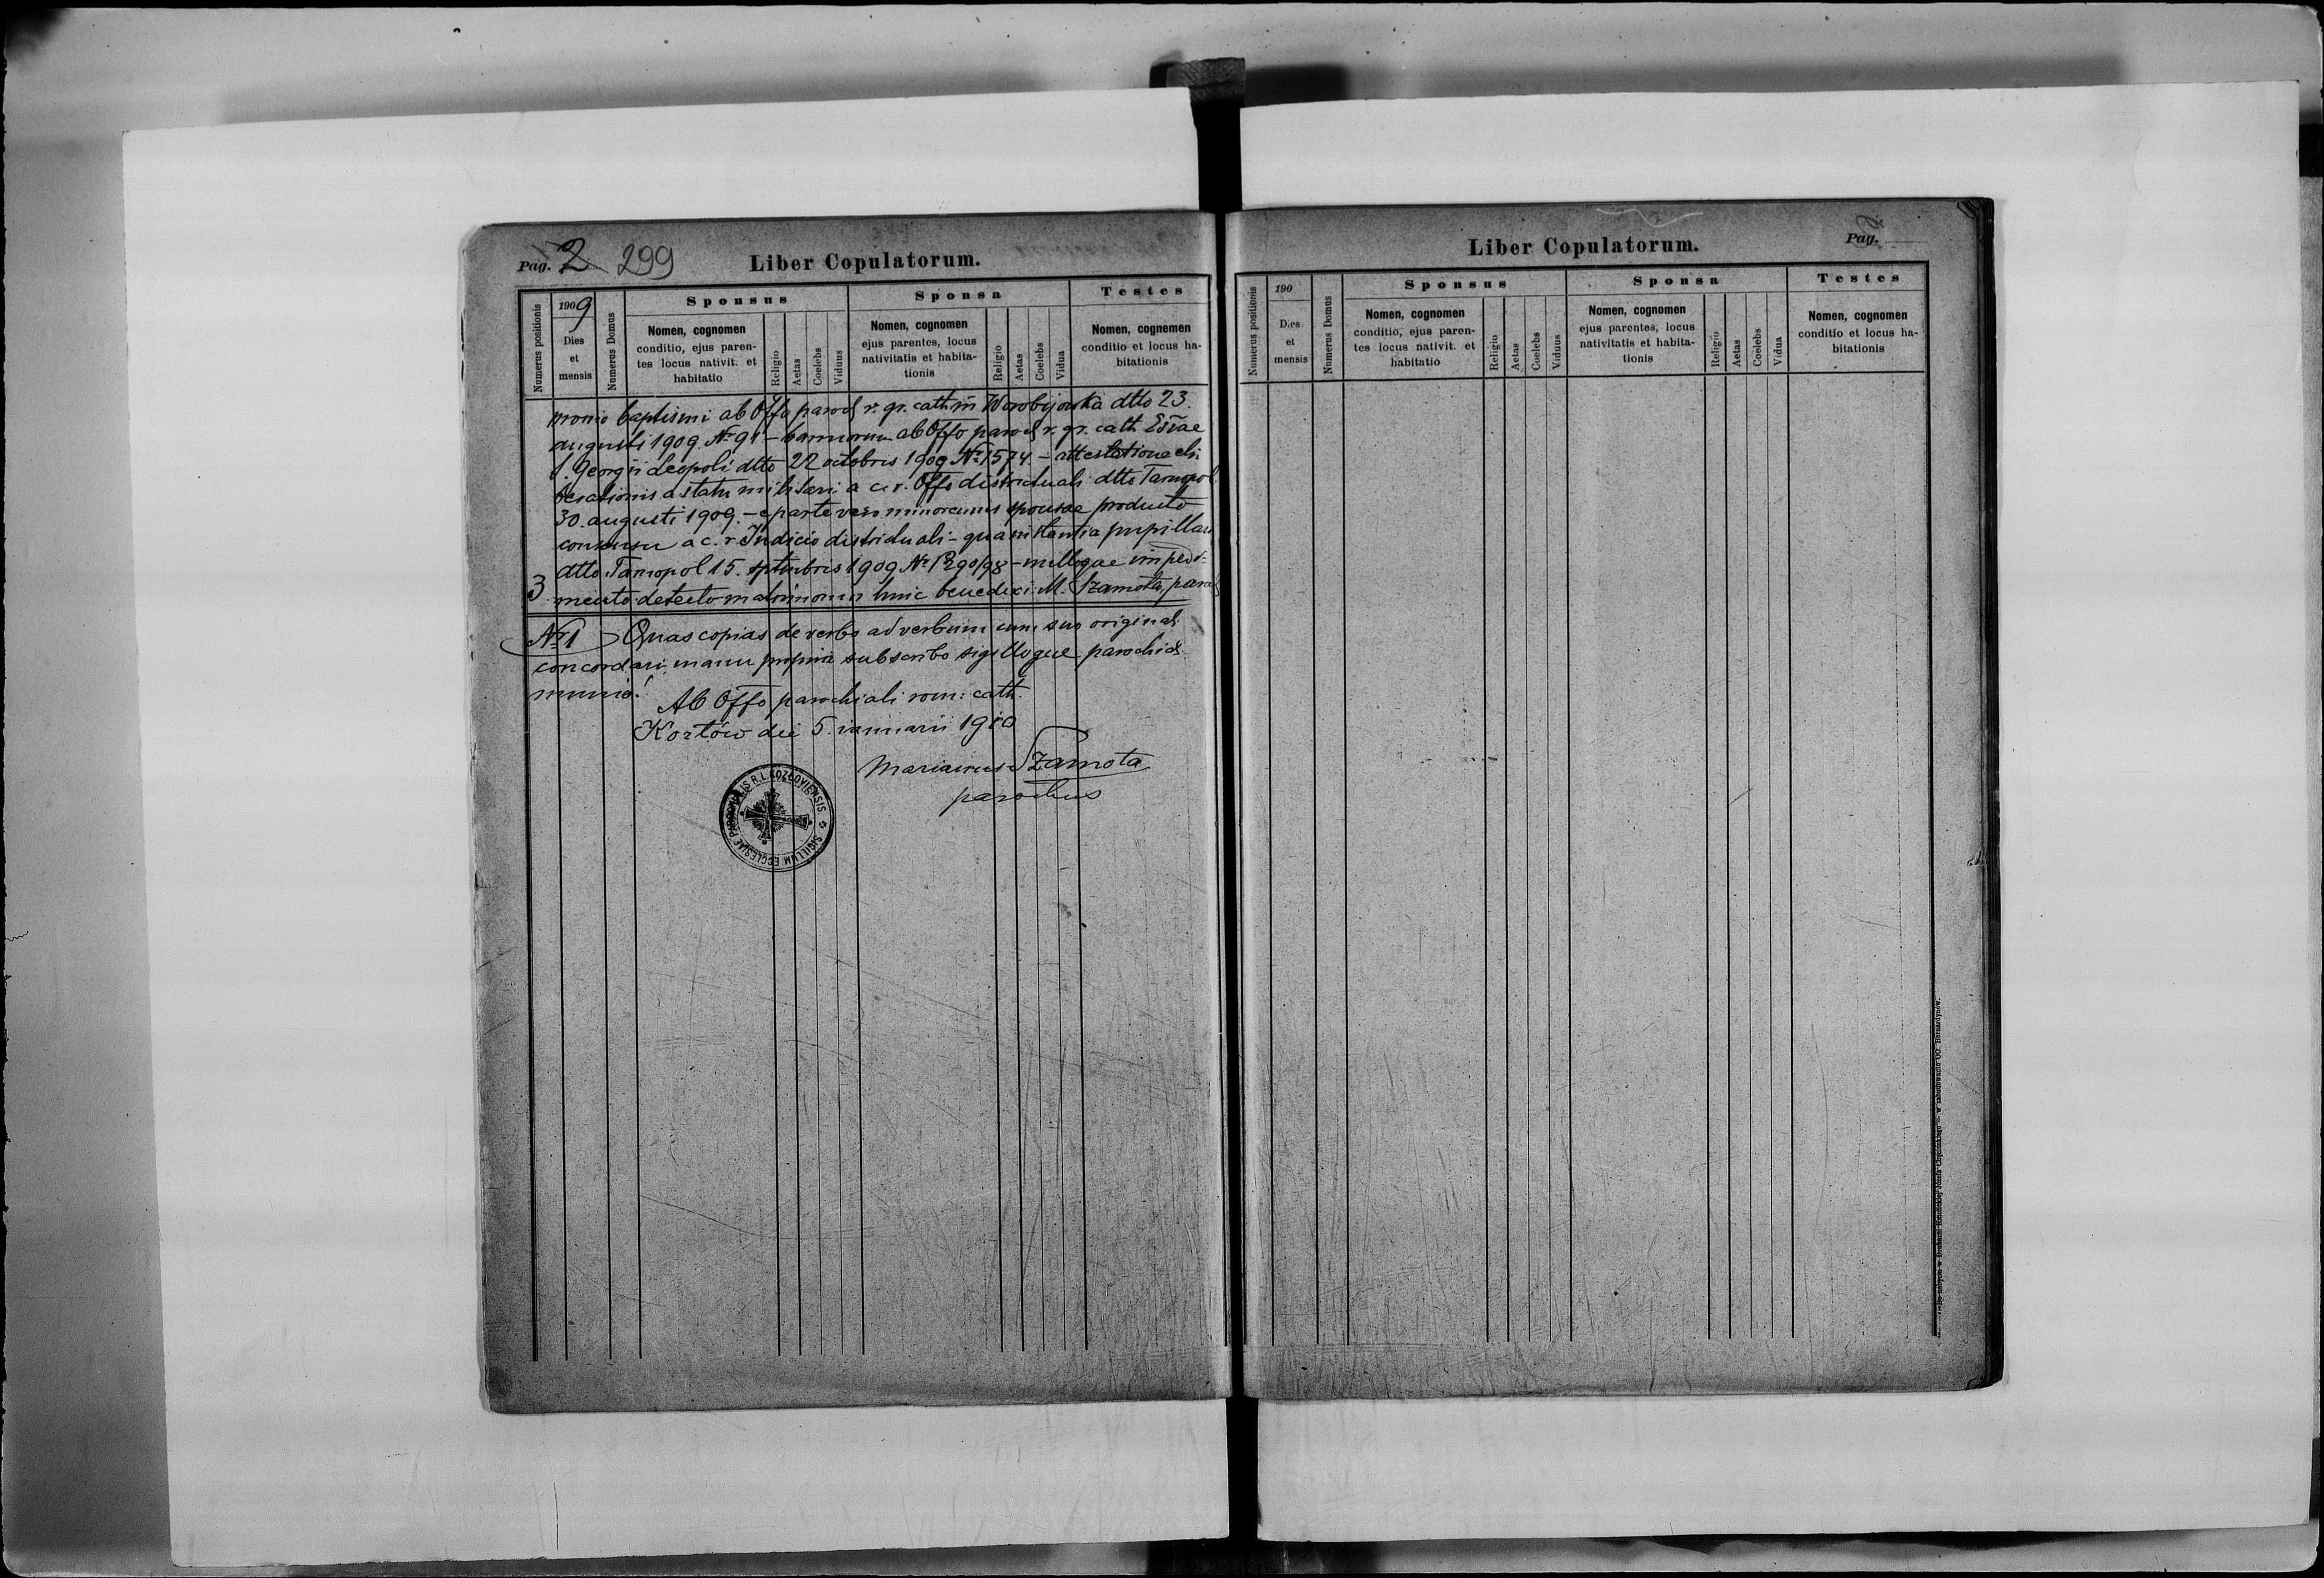 Pag. 2 299
Liber Copulatorum.
Numerus positionis
1909
Dies
et
mensis
Numerus Domus
Sponsus
Nomen, cognomen
conditio, ejus paren-
tes locus nativit. et
habitatio
Religio
Aetas
Coelebs
Viduus
Sponsa
Nomen, cognomen
ejus parentes, locus
nativitatis et habita-
tionis
Religio
Aetas
Coelebs
Vidua
Testes
Nomen, cognomen
conditio et locus ha-
bitationis
monio baptismi ab Offo paroch r. gr. cath in Worobijowka dtto 23.
augusti 1909 № 91 – bannorum ab Offo paroch r. gr. cath. Eccae
S. Georgii Leopoli dtto 22 octobris 1909 № 1574 – attestatione eli-
berationis a statu militari a c. r. Offo districtuali dtto Tarnopol
30. augusti 1909. – e parte vero minorennis sponsae producto
consensu a c. r Judicio districtuali – qua instantia pupillari
dtto Tarnopol 15. sptembris 1909 № P 290/98 – nulloque impedi-
3 mento detecto matrimonium huic benedixi: M. Szamota, paroch
№ 1 Quas copias de verbo ad verbum cum suo original.
concordari manu propria subscribo sigilloque parochial
munio!
Ab Offo parochiali rom: cath.
Kozłów die 5. ianuarii 1910
Marianus Szamota
parochus
SIGILLUM ECCLESIAE PAROCHIALIS R. L. KOZŁOVIENSIS
Liber Copulatorum.
Pag.
Numerus positionis
190
Dies
et
mensis
Numerus Domus
Sponsus
Nomen, cognomen
conditio, ejus paren-
tes locus nativit. et
habitatio
Religio
Aetas
Coelebs
Viduus
Sponsa
Nomen, cognomen
ejus parentes, locus
nativitatis et habita-
tionis
Religio
Aetas
Coelebs
Vidua
Testes
Nomen, cognomen
conditio et locus ha-
bitationis
w zabudowaniu OO. Bernardynów.